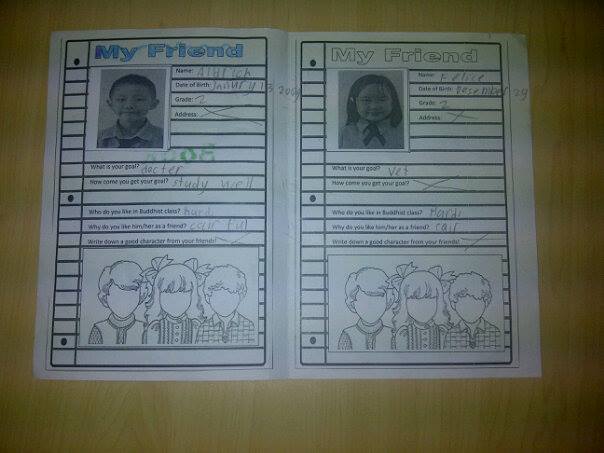 My Friend
Name: Aldrich
Date of Birth: January 13 2004
Grade: 2
Address:
What is your goal? docter
How come you get your goal? study well
Who do you like in Buddhist class? Hardi
Why do you like him/her as a friend? cair ful
Write down a good character from your friends!
My Friend
Name: Felice
Date of Birth: Desember 29
Grade: 2
Address:
What is your goal? Vet
How come you get your goal?
Who do you like in Buddhist class? Hardi
Why do you like him/her as a friend? cair
Write down a good character from your friends!